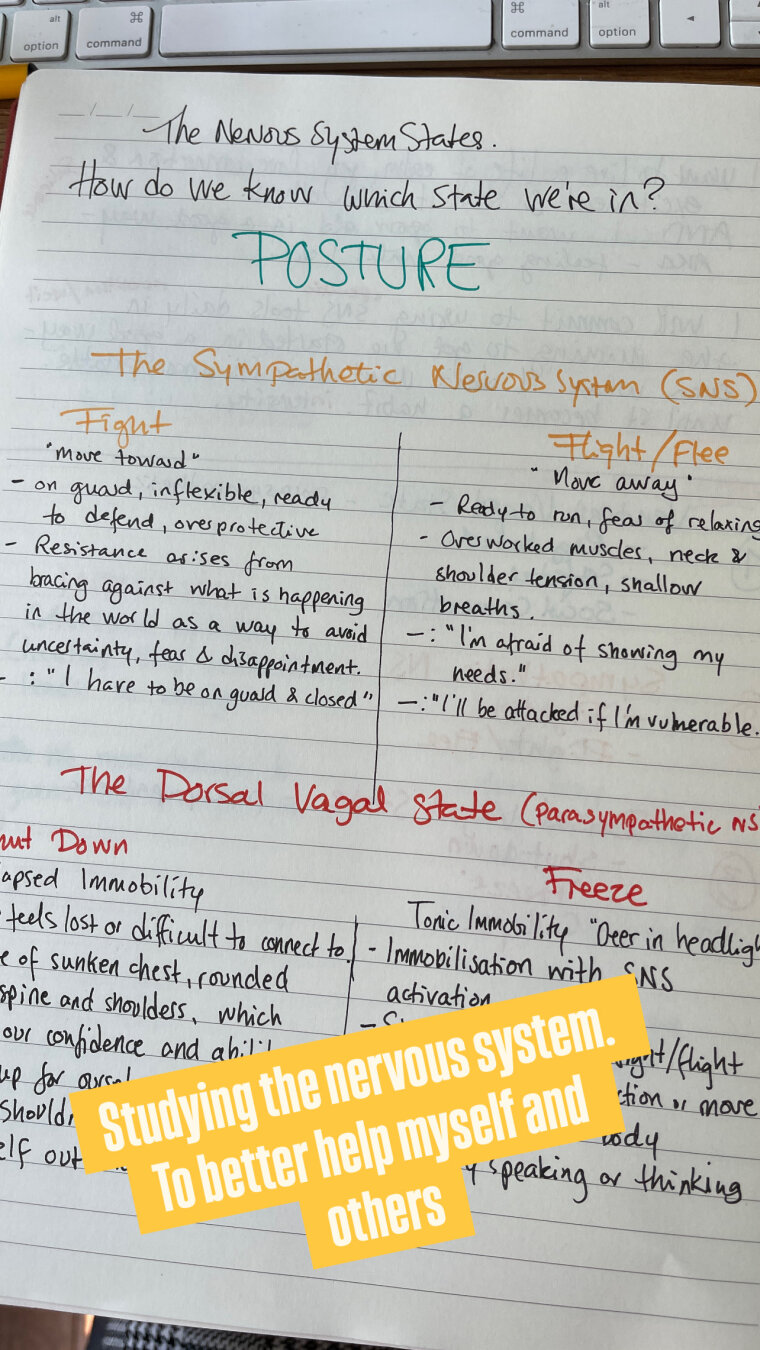 alt
option
⌘
command
⌘
command
alt
option
The Nervous System States.
How do we know which state we're in?
POSTURE
The Sympathetic Nervous System (SNS)
Fight
"move toward"
- on guard, inflexible, ready
to defend, overprotective
- Resistance arises from
bracing against what is happening
in the world as a way to avoid
uncertainty, fear & disappointment.
- : "I have to be on guard & closed"
Flight/Flee
"Move away"
- Ready to run, fear of relaxing
- Overworked muscles, neck &
shoulder tension, shallow
breaths.
-: "I'm afraid of showing my
needs."
-: "I'll be attacked if I'm vulnerable.
The Dorsal Vagal State (parasympathetic NS
Down
Immobility
feels lost or difficult to connect to.
of sunken chest, rounded
spine and shoulders, which
our confidence and
up for
Freeze
Tonic Immobility "Deer in
- Immobilisation with SNS
activation
/flight
or move
body
speaking or thinking
Studying the nervous system.
To better help myself and
others